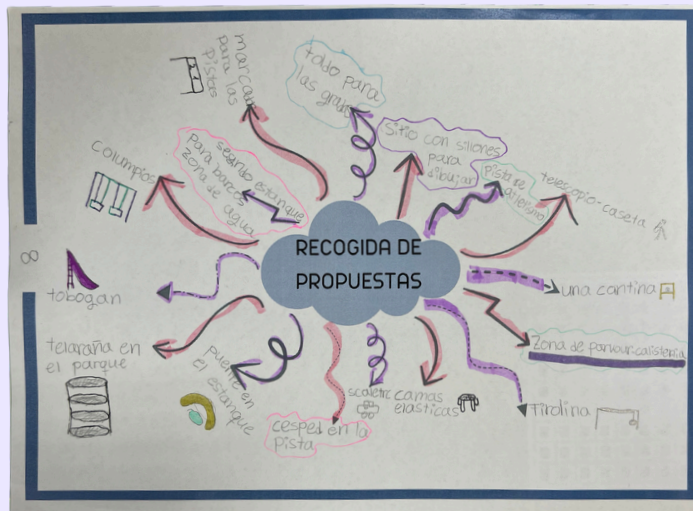 RECOGIDA DE
PROPUESTAS
marcador
para las
pistas
toldo para
las gradas
sitio con sillones
para
dibujar
pista de
atletismo
telescopio-caseta
una cantina
zona de parkour-calistenia
tirolina
camas
elasticas
scaletric
cesped en la
pista
puente en
el estanque
telaraña en
el parque
tobogan
columpios
segundo estanque
para barcos
zona de agua
8